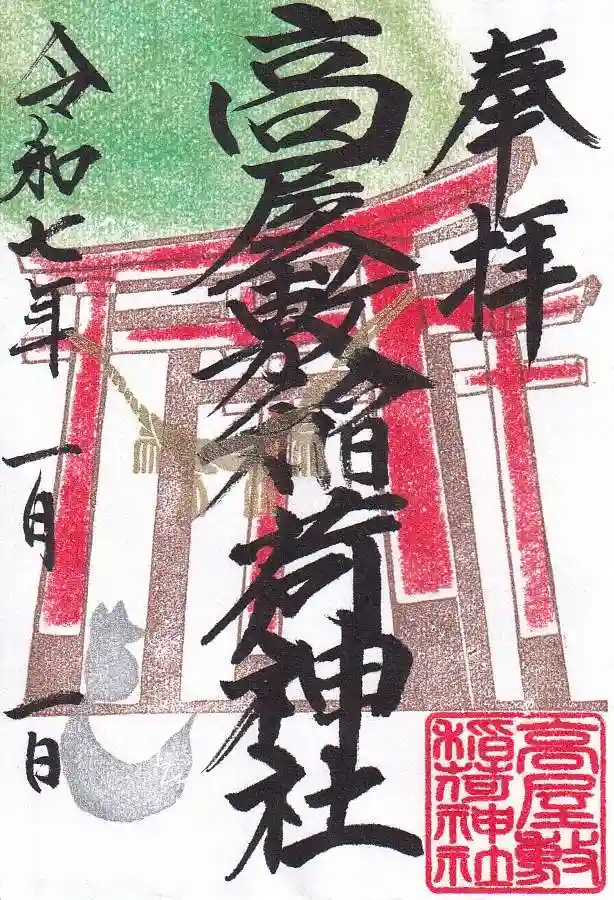 奉拝
高屋敷稲荷神社
令和七年 一月 一日
高屋敷
稲荷神社